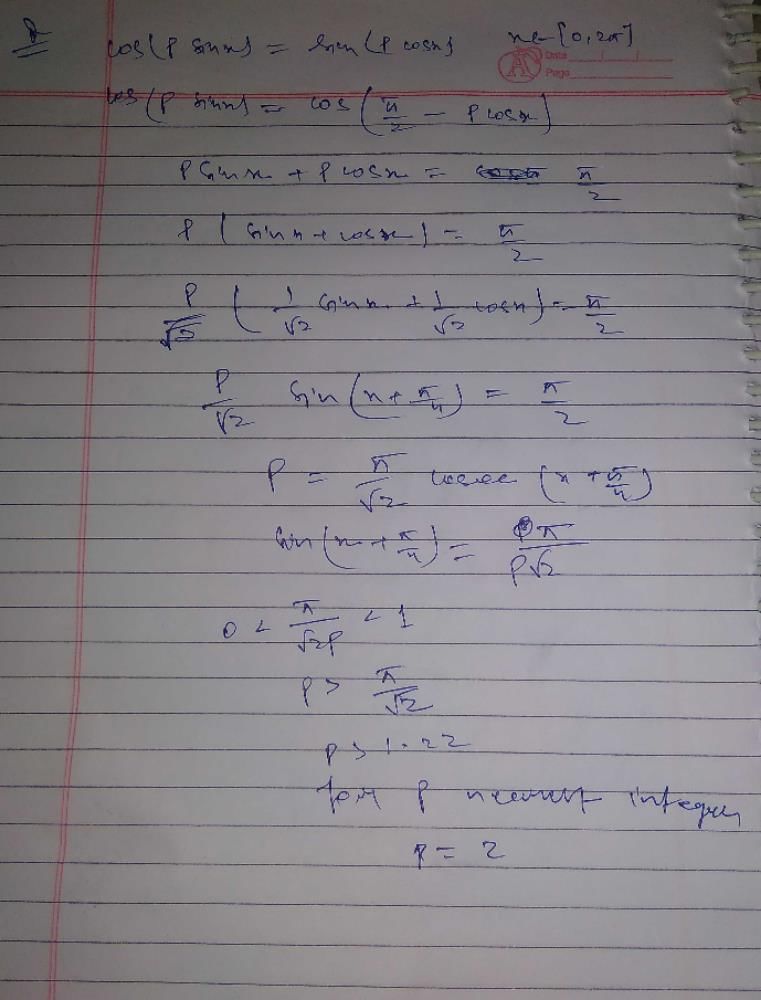 cos(P sinx) = sin(P cosx) x∈[0,2π]
Date
Page
cos(P sinx) = cos(π/2 - P cosx)
P sinx + P cosx = π/2
P (sinx + cosx) = π/2
P/√2 (1/√2 sinx + 1/√2 cosx) = π/2
P/√2 sin(x + π/4) = π/2
P = π/√2 cosec (x + π/4)
sin(x + π/4) = π/P√2
0 < π/√2P < 1
P > π/√2
P > 1.22
for P nearest integer
P = 2